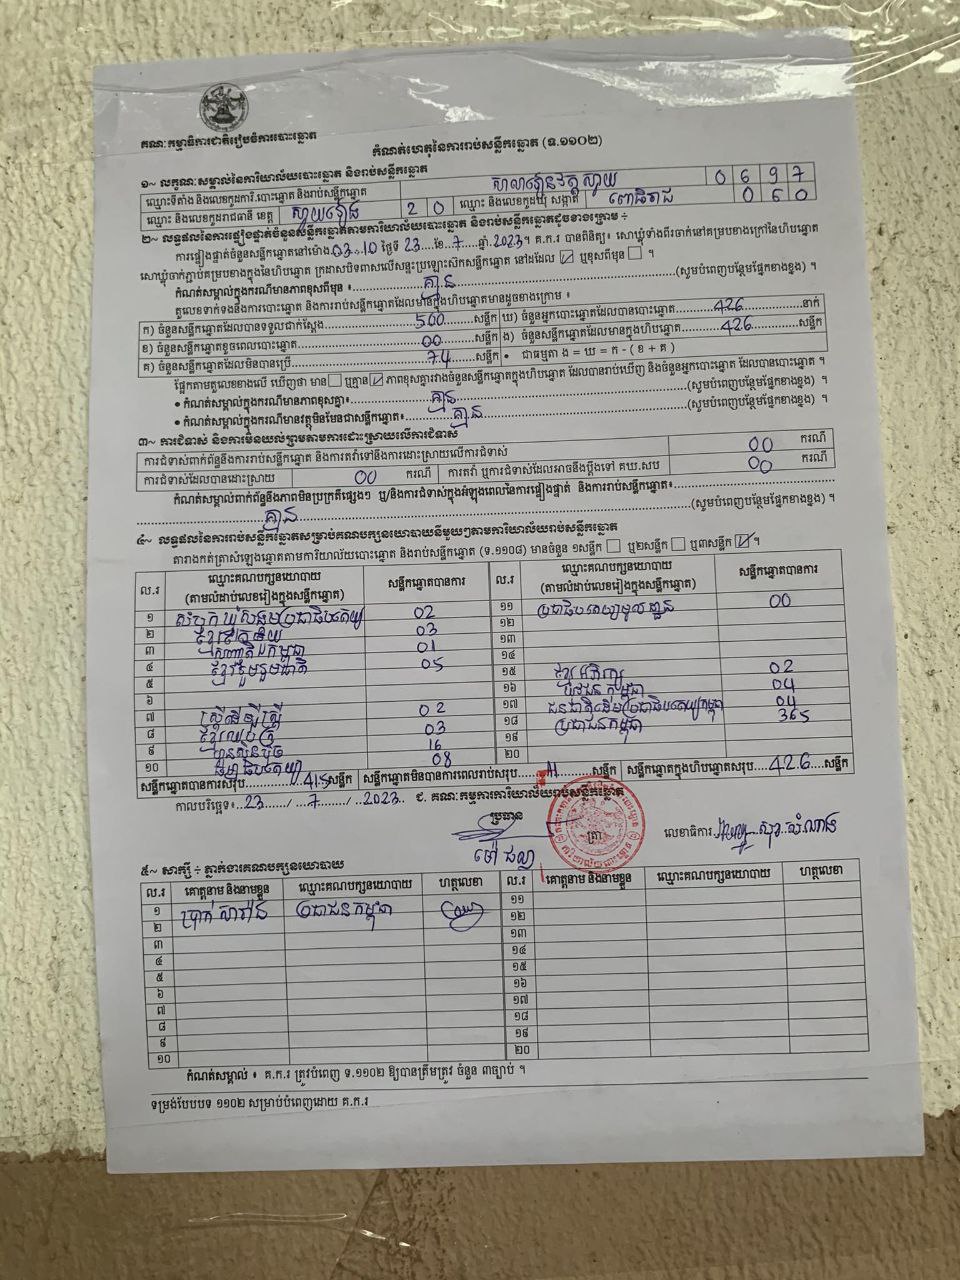 គណៈកម្មាធិការជាតិរៀបចំការបោះឆ្នោត
កំណត់ហេតុនៃការរាប់សន្លឹកឆ្នោត (ទ.១១០២)
១~ លក្ខណៈសម្គាល់នៃការិយាល័យបោះឆ្នោត និងរាប់សន្លឹកឆ្នោត
ឈ្មោះទីតាំង និងលេខកូដការិ.បោះឆ្នោត និងរាប់សន្លឹកឆ្នោត សាលារៀនវត្តស្វាយ 0 6 9 7
ឈ្មោះ និងលេខកូដរាជធានី ខេត្ត ស្វាយរៀង 2 0 ឈ្មោះ និងលេខកូដឃុំ សង្កាត់ ពោធិរាជ 0 6 0
២~ លទ្ធផលនៃការផ្ទៀងផ្ទាត់ចំនួនសន្លឹកឆ្នោតតាមការិយាល័យបោះឆ្នោត និងរាប់សន្លឹកឆ្នោតដូចខាងក្រោម ÷
ការផ្ទៀងផ្ទាត់ចំនួនសន្លឹកឆ្នោតនៅម៉ោង 03:10 ថ្ងៃទី 23 ខែ 7 ឆ្នាំ 2023។ គ.ក.រ បានពិនិត្យ៖ សោឃ្មុំទាំងពីរចាក់គម្របខាងក្រៅនៃហិបឆ្នោត
សោឃ្មុំចាក់ភ្ជាប់គម្របខាងក្នុងនៃហិបឆ្នោត ក្រដាសបិទពាសលើសន្ទះប្រឡោះស៊ីកសន្លឹកឆ្នោត នៅដដែល ☑ ឬខុសពីមុន ☐ ។
កំណត់សម្គាល់ក្នុងករណីមានភាពខុសពីមុន ៖ គ្មាន (សូមបំពេញបន្ថែមផ្នែកខាងខ្នង) ។
តួលេខទាក់ទងនឹងការបោះឆ្នោត និងការរាប់សន្លឹកឆ្នោតដែលមានក្នុងហិបឆ្នោតមានដូចខាងក្រោម ៖
ក) ចំនួនសន្លឹកឆ្នោតដែលបានទទួលជាក់ស្តែង 500 សន្លឹក ឃ) ចំនួនអ្នកបោះឆ្នោតដែលបានបោះឆ្នោត 426 នាក់
ខ) ចំនួនសន្លឹកឆ្នោតខូចពេលបោះឆ្នោត 00 សន្លឹក ង) ចំនួនសន្លឹកឆ្នោតដែលមានក្នុងហិបឆ្នោត 426 សន្លឹក
គ) ចំនួនសន្លឹកឆ្នោតដែលមិនបានប្រើ 74 សន្លឹក • ជាធម្មតា ង = ឃ = ក - ( ខ + គ )
ផ្អែកតាមតួលេខខាងលើ ឃើញថា មាន ☐ ឬគ្មាន ☑ ភាពខុសគ្នារវាងចំនួនសន្លឹកឆ្នោតក្នុងហិបឆ្នោត ដែលបានរាប់ឃើញ និងចំនួនអ្នកបោះឆ្នោត ដែលបានបោះឆ្នោត ។
• កំណត់សម្គាល់ក្នុងករណីមានភាពខុសគ្នា៖ គ្មាន (សូមបំពេញបន្ថែមផ្នែកខាងខ្នង) ។
• កំណត់សម្គាល់ក្នុងករណីមានវត្ថុមិនមែនជាសន្លឹកឆ្នោត៖ គ្មាន (សូមបំពេញបន្ថែមផ្នែកខាងខ្នង) ។
៣~ ការជំទាស់ និងការមិនយល់ព្រមតាមការដោះស្រាយលើការជំទាស់
ការជំទាស់ពាក់ព័ន្ធនឹងការរាប់សន្លឹកឆ្នោត និងការតវ៉ាទៅនឹងការដោះស្រាយលើការជំទាស់ 00 ករណី
ការជំទាស់ដែលបានដោះស្រាយ 00 ករណី ការតវ៉ា ឬការជំទាស់ដែលអាចនឹងប្តឹងទៅ គឃ.សប 00 ករណី
កំណត់សម្គាល់ពាក់ព័ន្ធនឹងភាពមិនប្រក្រតីផ្សេងៗ ឬ/និងការជំទាស់ក្នុងអំឡុងពេលនៃការផ្ទៀងផ្ទាត់ និងការរាប់សន្លឹកឆ្នោត៖
គ្មាន (សូមបំពេញបន្ថែមផ្នែកខាងខ្នង) ។
៤~ លទ្ធផលនៃការរាប់សន្លឹកឆ្នោតសម្រាប់គណបក្សនយោបាយនីមួយៗតាមការិយាល័យរាប់សន្លឹកឆ្នោត
តារាងកត់ត្រាសំឡេងឆ្នោតតាមការិយាល័យបោះឆ្នោត និងរាប់សន្លឹកឆ្នោត (ទ.១១០៨) មានចំនួន ១សន្លឹក ☐ ឬ២សន្លឹក ☐ ឬ៣សន្លឹក ☑ ។
ល.រ ឈ្មោះគណបក្សនយោបាយ (តាមលំដាប់លេខរៀងក្នុងសន្លឹកឆ្នោត) សន្លឹកឆ្នោតបានការ ល.រ ឈ្មោះគណបក្សនយោបាយ (តាមលំដាប់លេខរៀងក្នុងសន្លឹកឆ្នោត) សន្លឹកឆ្នោតបានការ
១ សំបុកឃ្មុំសង្គមប្រជាធិបតេយ្យ 02 ១១ ប្រជាធិបតេយ្យមូលដ្ឋាន 00
២ 03 ១២
៣ សញ្ជាតិកម្ពុជា 01 ១៣
៤ ខ្មែររួបរួមជាតិ 05 ១៤
៥ ១៥ ខ្មែរអភិរក្ស 02
៦ ១៦ យុវជនកម្ពុជា 04
៧ ស្ត្រីដើម្បីស្ត្រី 02 ១៧ ជនជាតិដើមប្រជាធិបតេយ្យកម្ពុជា 04
៨ ខ្មែរឈប់ក្រ 03 ១៨ ប្រជាជនកម្ពុជា 365
៩ ហ៊្វុនស៊ិនប៉ិច 16 ១៩
១០ ធម្មាធិបតេយ្យ 08 ២០
សន្លឹកឆ្នោតបានការសរុប 415 សន្លឹក សន្លឹកឆ្នោតមិនបានការពេលរាប់សរុប 11 សន្លឹក សន្លឹកឆ្នោតក្នុងហិបឆ្នោតសរុប 426 សន្លឹក
កាលបរិច្ឆេទ៖ 23 / 7 / 2023 ជ. គណៈកម្មការការិយាល័យរាប់សន្លឹកឆ្នោត
ប្រធាន
ត្រា
លេខាធិការ សុខ សំណាង
៥~ សាក្សី ÷ ភ្នាក់ងារគណបក្សនយោបាយ
ល.រ គោត្តនាម និងនាមខ្លួន ឈ្មោះគណបក្សនយោបាយ ហត្ថលេខា ល.រ គោត្តនាម និងនាមខ្លួន ឈ្មោះគណបក្សនយោបាយ ហត្ថលេខា
១ ប្រាក់ សារ៉ាន់ ប្រជាជនកម្ពុជា ១១
២ ១២
៣ ១៣
៤ ១៤
៥ ១៥
៦ ១៦
៧ ១៧
៨ ១៨
៩ ១៩
១០ ២០
កំណត់សម្គាល់ ៖ គ.ក.រ ត្រូវបំពេញ ទ.១១០២ ឱ្យបានត្រឹមត្រូវ ចំនួន ៣ច្បាប់ ។
ទម្រង់បែបបទ ១១០២ សម្រាប់បំពេញដោយ គ.ក.រ